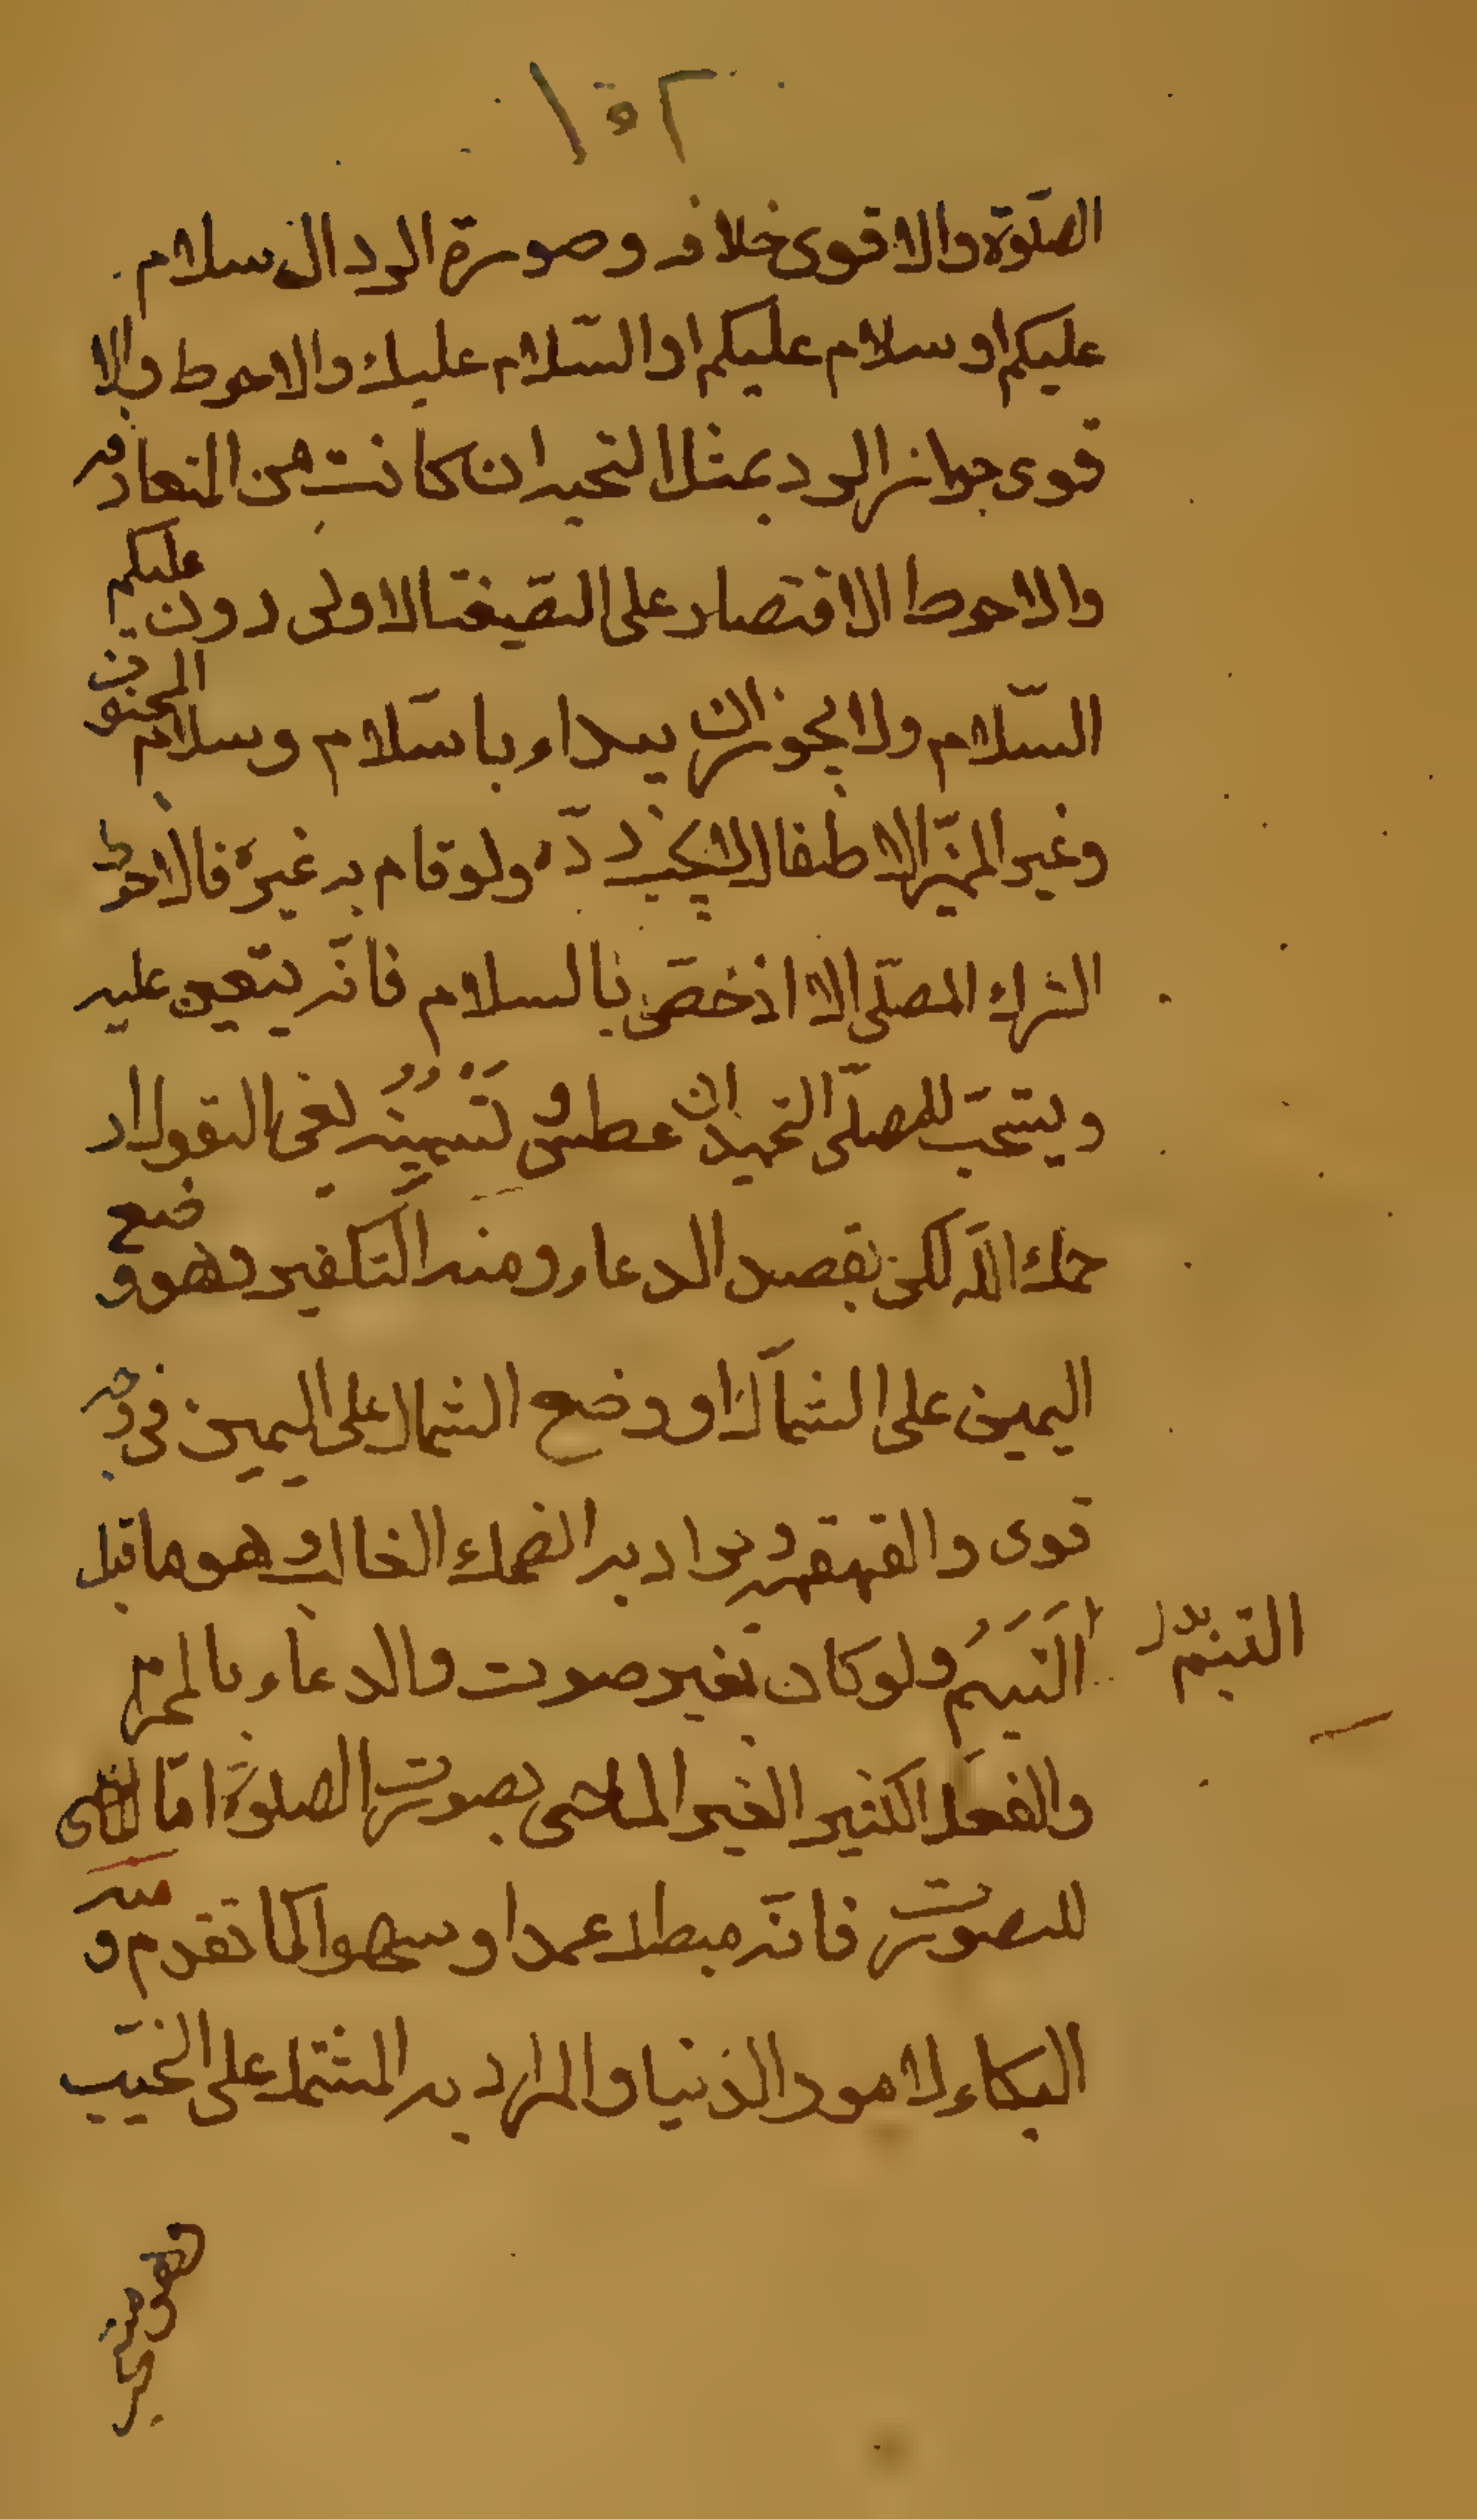 ١٥٢
الصّلوة والاقوى خلافه وصورة الرد السلام
عليكم او سلام عليكم او السّلام عليك والاحوط والا
قوى جواز الرد بمثل التحية ان كانت من المتعارفة
والاحوط الاقتصار على الصّيغة الاولى دون عليكم
السّلام ولا يجوز ان يبداء باسّلام وسلام المجنون
وغير المميّز الاطفال لا يجب ردّه ولو قام به غيره فالاحوط
الترك المصلّى الا اذ خصّ بالسلام فانّه يتعين عليه
ويستحبّ للمصلّى التحميد ان عطس وفى تَسْميته لغيره القول ير
حمك الله لكن بقصد الدعاء ومنه التكفير وهو وضع
اليمين على الشمال او وضع الشمال على اليمين فى وجه
قوى والقهقهه يراد به الضحك الخالى وهو ما قبل
التبسم ولو كان تغير صوت والدعاء بالمحرم
التبسّم
والفعل الكثير الغير الماحى بصورة الصلوة امّا الماحى
للصورة فانّه مبطل عمدا وسهوا كما تقدم و
البكاء لامور الدنيا والمراد به المشتمل على النحيب